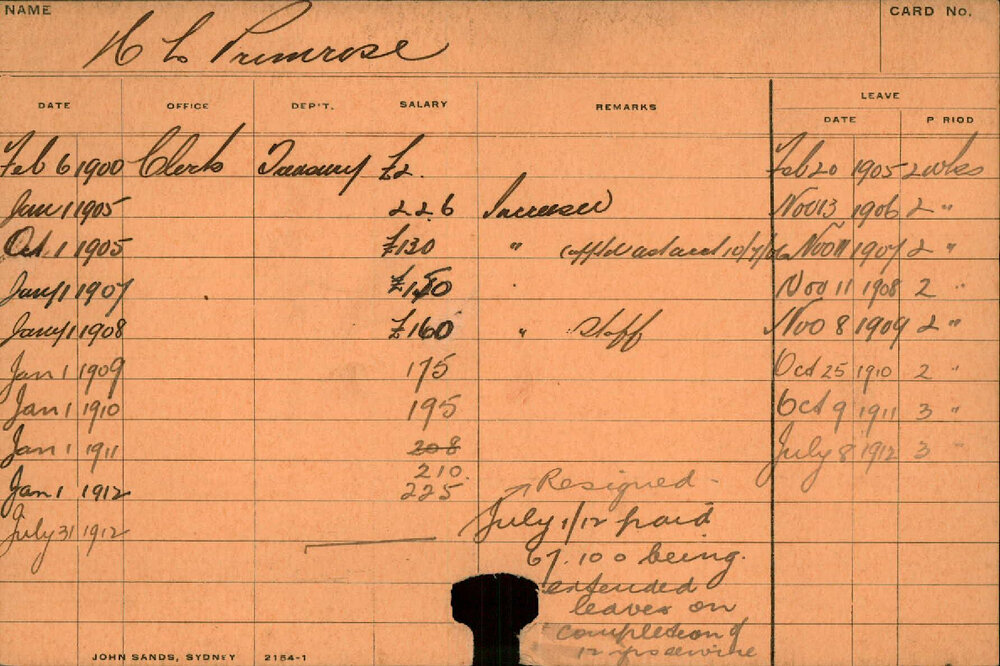 NAME CARD No.
H L Primrose
LEAVE
DATE OFFICE DEP'T. SALARY REMARKS DATE P RIOD
Feb 6 1900 Clerk Treasury £2. Feb 20 1905 2 wks
Jany 1 1905 226 Increased Nov 13 1906 2 "
Oct. 1 1905 £130 " 10/7/06 Nov 11 1907 2 "
Jany 1 1907 £150 Nov 11 1908 2 "
Jany 1 1908 £160 " Staff Nov 8 1909 2 "
Jan 1 1909 175 Oct 25 1910 2 "
Jan 1 1910 195 Oct 9 1911 3 "
Jan 1 1911 208 July 8 1912 3 "
210
Jan 1 1912 225 Resigned -
July 31 1912 July 1/12 paid
67.10 0 being
extended
leave on
completion of
12 yrs service
JOHN SANDS, SYDNEY 2154-1